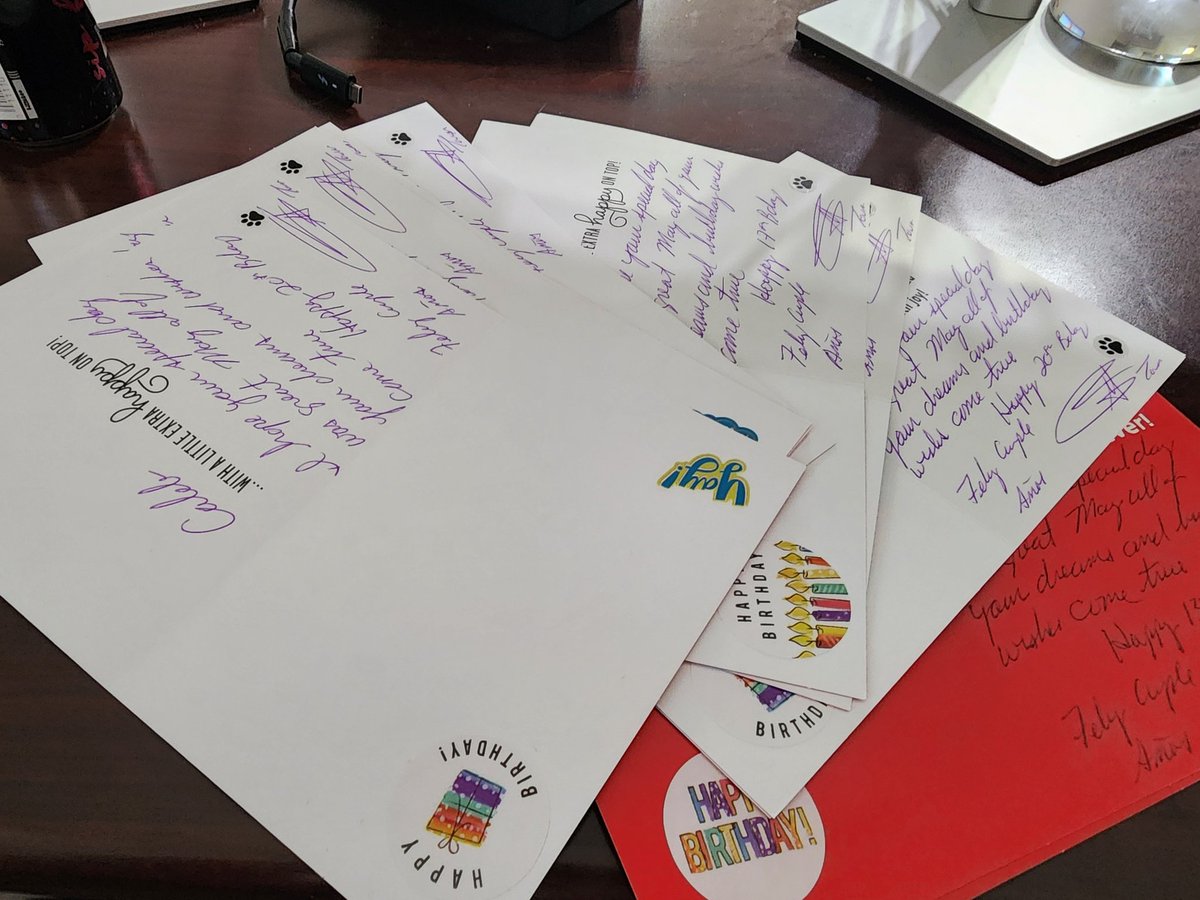 Caleb
...WITH A LITTLE EXTRA happy ON TOP!
I hope your special day
was great May all of
your dreams and wishes
come true
Happy 20th Bday
Feliz Cumple
Años
yay!
HAPPY BIRTHDAY!
EXTRA happy ON TOP!
your special day
great May all of your
and birthday wishes
come true
Happy 17th Bday
Feliz Cumple
Años
HAPPY
BIRTHDAY
your special day
great May all of
your dreams and birthday
wishes come true
Happy 20th Bday
Feliz Cumple
Años
BIRTHD
ver!
special day
great May all of
your dreams and
wishes come true
Happy
Feliz Cumple
Años
HAPPY
BIRTHDAY!